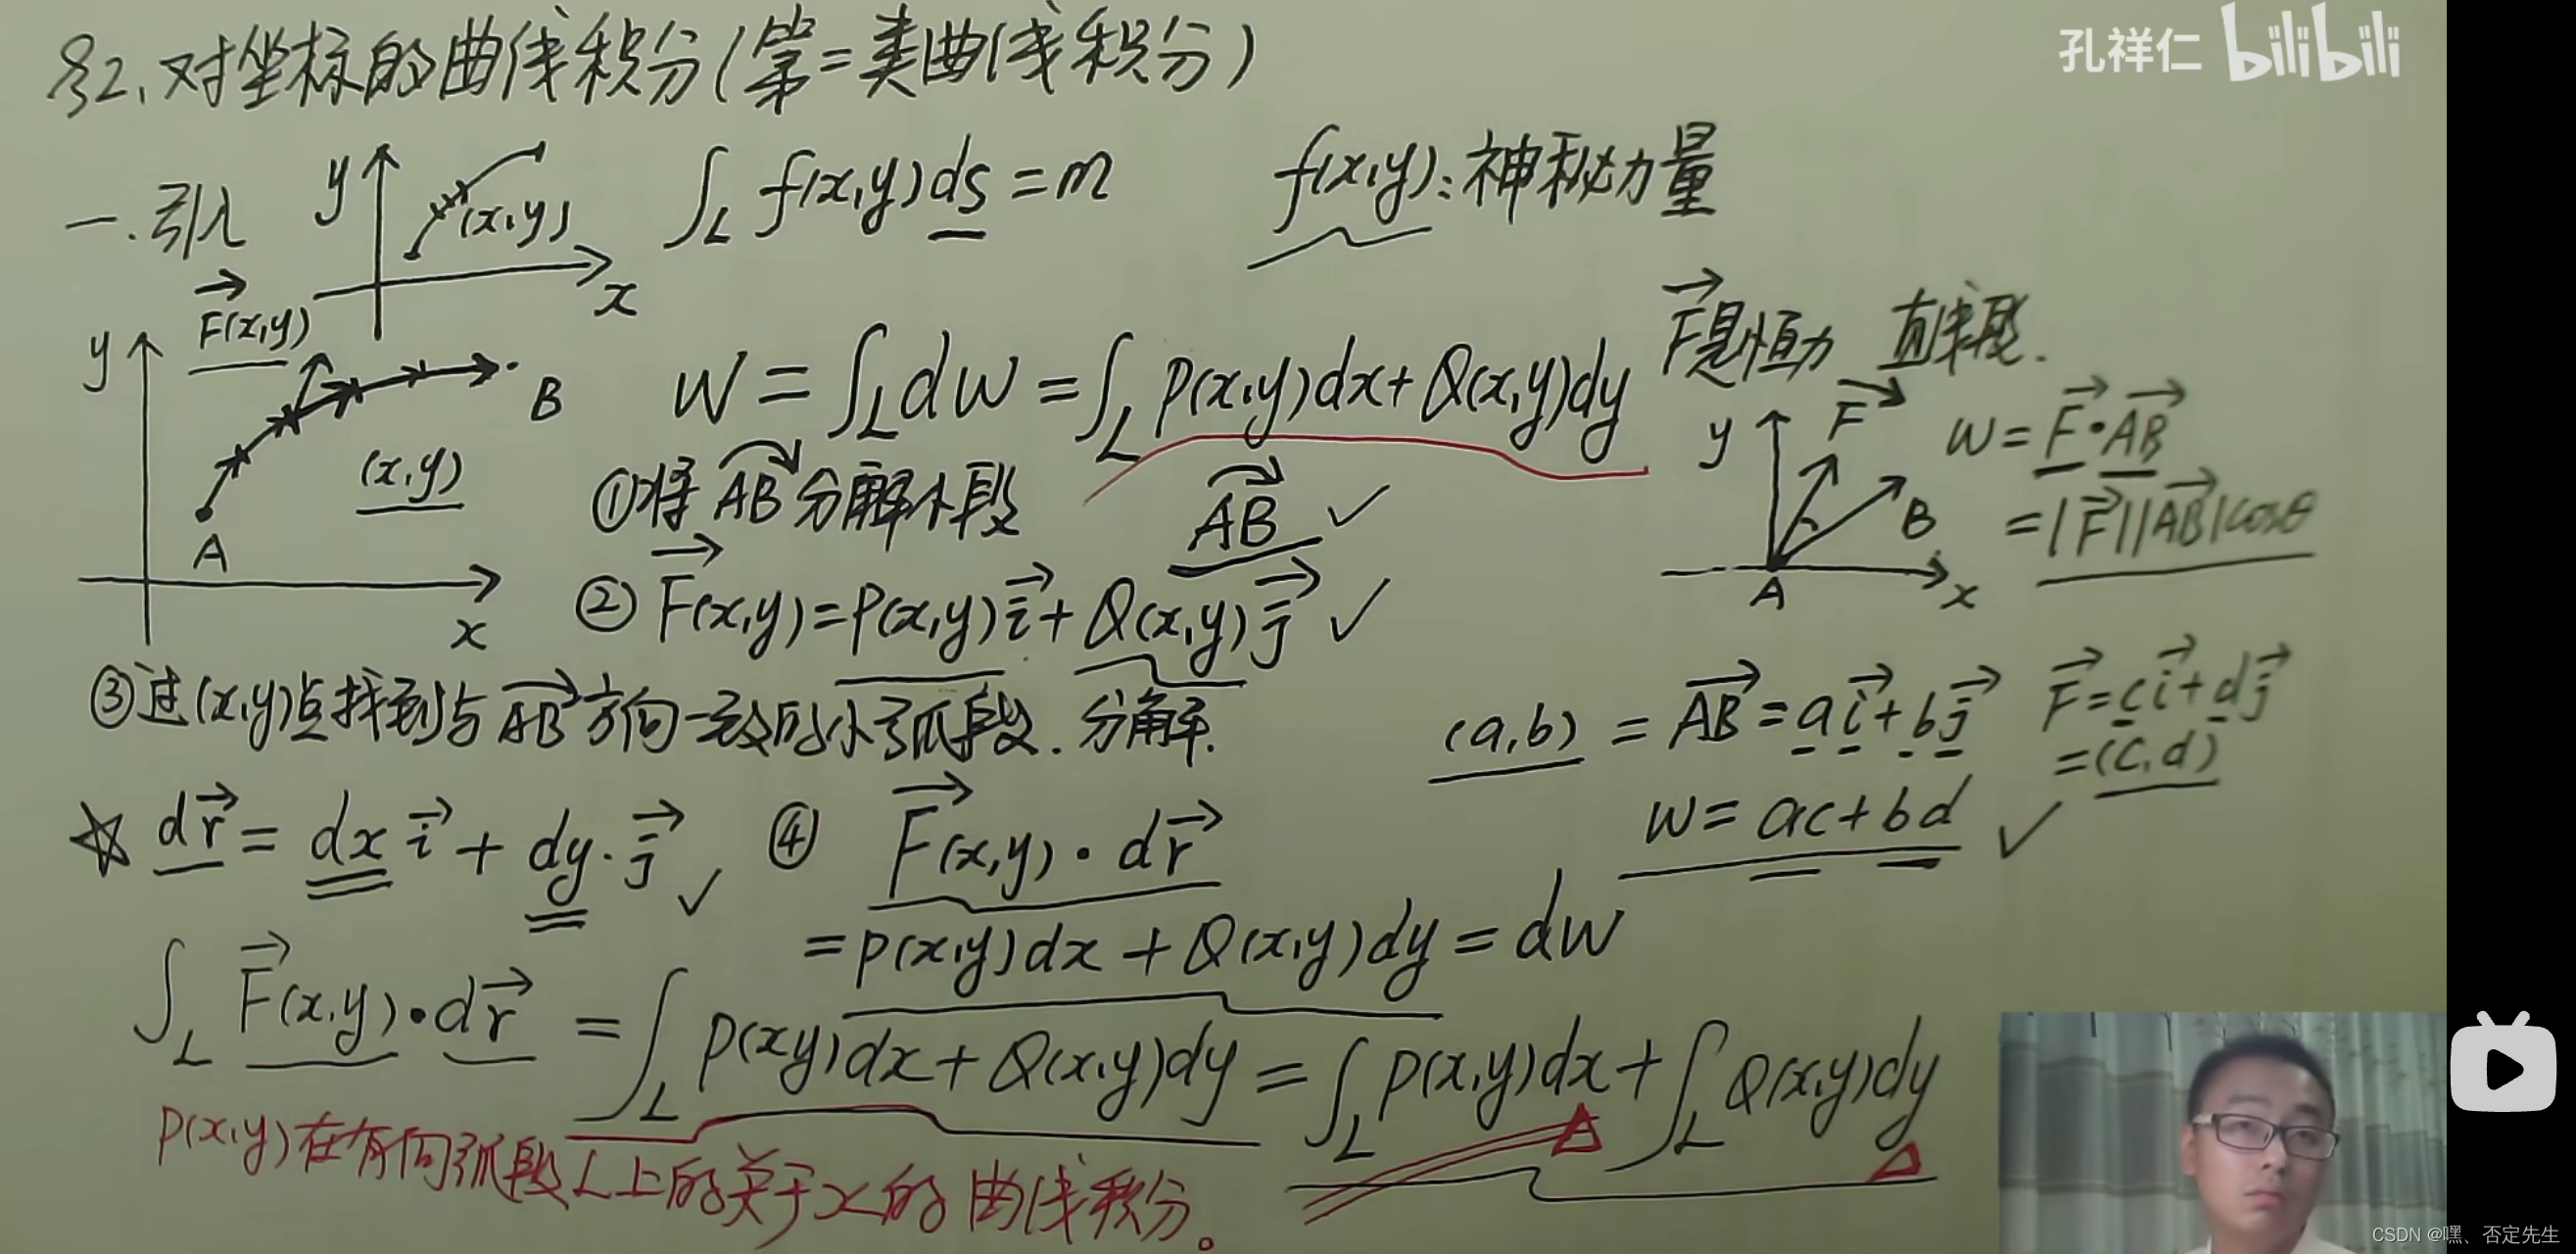 §2.对坐标的曲线积分(第二类曲线积分)
孔祥仁 bilibili
一.引入
y
(x,y)
x
∫_L f(x,y)ds=m
f(x,y):神秘力量
F⃗(x,y)
y
B
(x,y)
A
x
W=∫_L dW=∫_L P(x,y)dx+Q(x,y)dy
F⃗是恒力 直线段.
①将AB分解小段
AB ✓
y
F⃗
B
A
x
W=F⃗·AB⃗
=|F⃗||AB⃗|cosθ
②F⃗(x,y)=P(x,y)i⃗+Q(x,y)j⃗ ✓
③过(x,y)点找到与AB⃗方向一致的小弧段.分解.
(a,b)=AB⃗=ai⃗+bj⃗
F⃗=ci⃗+dj⃗
=(c,d)
W=ac+bd ✓
☆ dr⃗=dx i⃗+dy·j⃗ ✓
④ F⃗(x,y)·dr⃗
=P(x,y)dx+Q(x,y)dy=dW
∫_L F⃗(x,y)·dr⃗=∫_L P(xy)dx+Q(x,y)dy=∫_L P(x,y)dx+∫_L Q(x,y)dy
P(x,y)在有向弧段L上的关于x的曲线积分。
CSDN @嘿、否定先生